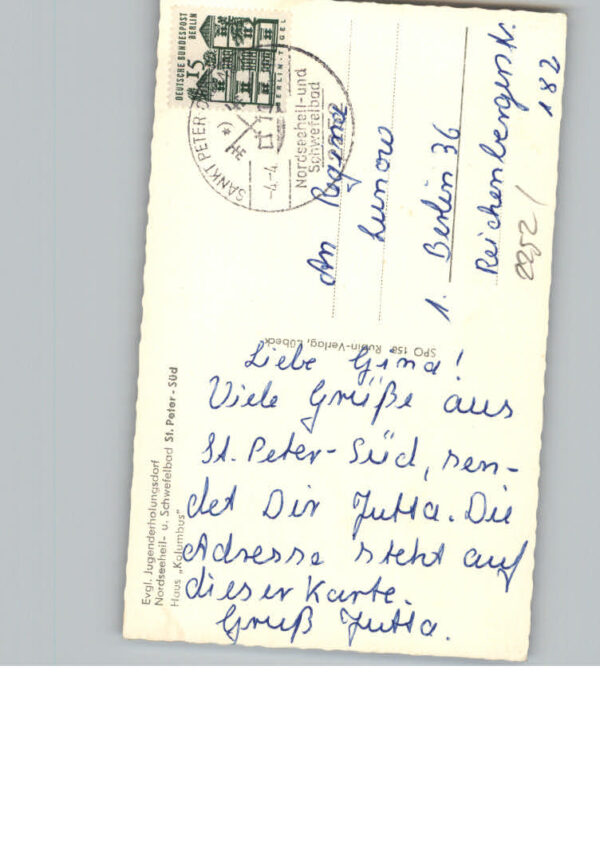 DEUTSCHE BUNDESPOST
BERLIN
15
BERLIN-TEGEL
SANKT PETER-
-4.-4.
Nordseeheil-und
Schwefelbad
An
Lunow
1. Berlin 36
Reichenbergerstr.
182
2252/
SPO 158 Rubin-Verlag, Lübeck
Evgl. Jugenderholungsdorf
Nordseeheil- u. Schwefelbad St. Peter-Süd
Haus „Kolumbus"
Liebe Gina!
Viele Grüße aus
St. Peter-Süd, sen-
det Dir Jutta. Die
Adresse steht auf
dieser Karte.
Gruß Jutta.